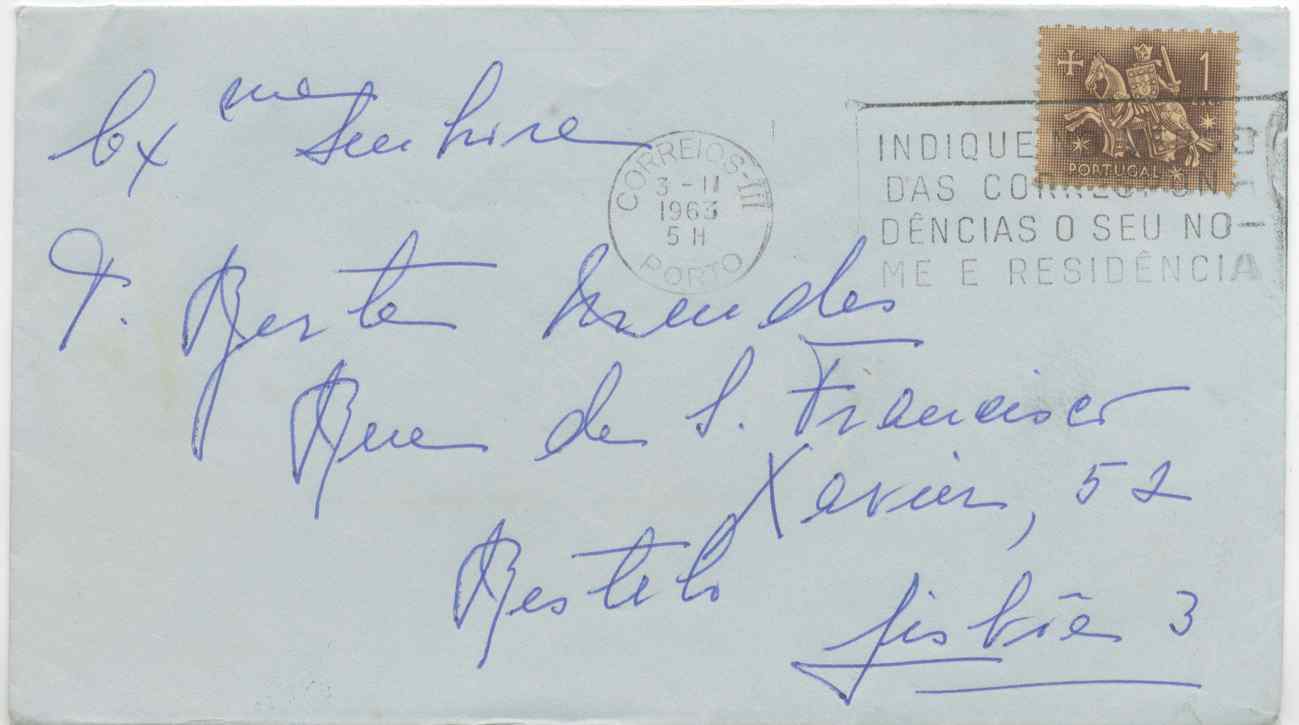 Exma Senhora
D. Berta Mendes
Rua de S. Francisco
Xavier, 52
Restelo
Lisbôa 3
CORREIOS-III
3-II
1963
5 H
PORTO
1
PORTUGAL
INDIQUE
DAS CORRESPON
DÊNCIAS O SEU NO-
ME E RESIDÊNCIA